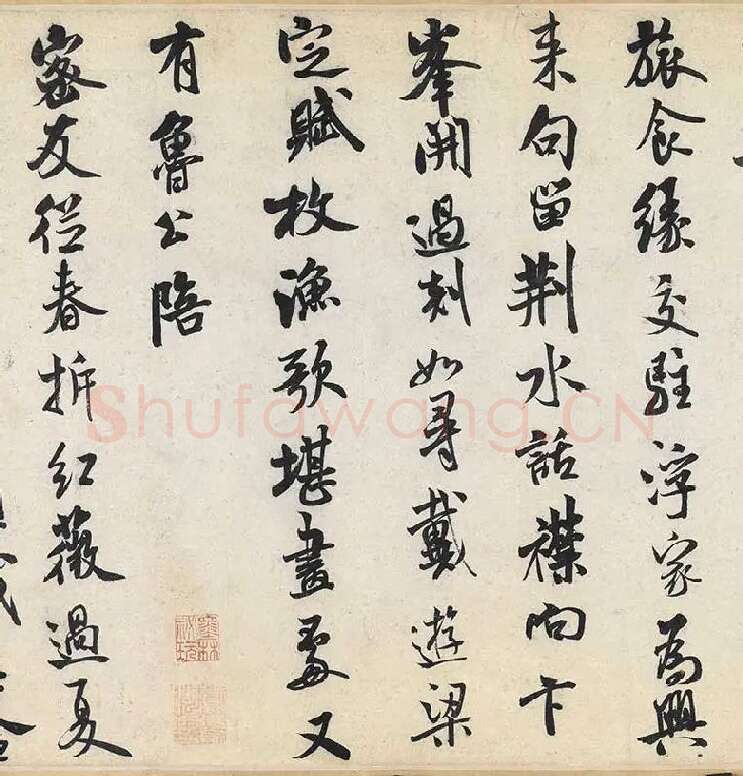 旅食緣交駐浮家為興
来句留荆水話襟向卞
峯開過剡如尋戴遊梁
定賦枚漁歌堪畫處又
有魯公陪
密友從春拆紅薇過夏
Shufawang.CN